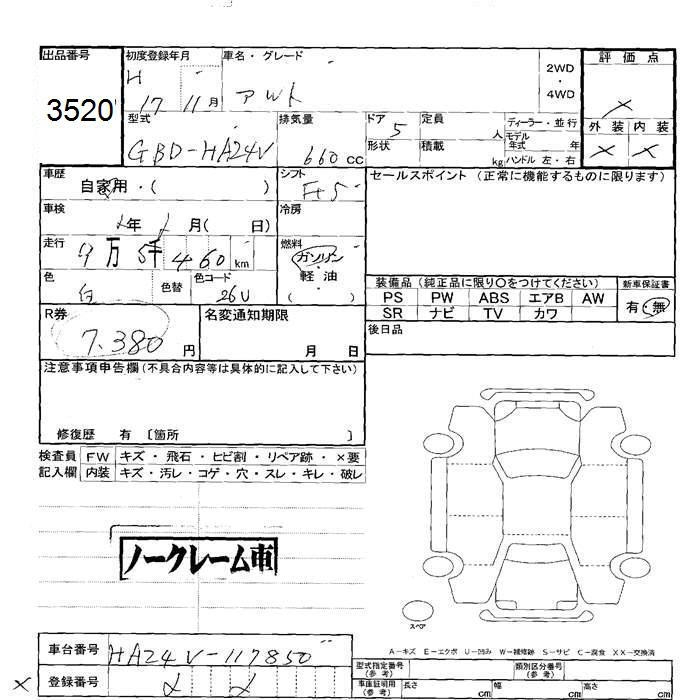 出品番号 初度登録年月 車名・グレード 2WD・4WD 評価点
3520
H 17 11月 アルト ×
型式 排気量 ドア 定員 ディーラー・並行 外装 内装
GBD-HA24V 660cc 5 人 モデル年式 年 × ×
形状 積載 kg ハンドル 左・右
車歴 自家用・( ) シフト F5 セールスポイント (正常に機能するものに限ります)
車検 年 月( 日) 冷房
走行 9万5千460km 燃料 ガソリン・軽油 ( )
色 白 色替 色コード 26U
装備品 (純正品に限り〇をつけてください) 新車保証書
PS PW ABS エアB AW 有・無
SR ナビ TV カワ
R券 7.380円 名変通知期限 月 日 後日品
注意事項申告欄 (不具合内容等は具体的に記入して下さい)
修復歴 有 〔箇所 〕
検査員 FW キズ・飛石・ヒビ割・リペア跡・×要
記入欄 内装 キズ・汚レ・コゲ・穴・スレ・キレ・破レ
ノークレーム車
スペア
A-キズ E-エクボ U-凹み W-補修跡 S-サビ C-腐食 XX-交換済
車台番号 HA24V-117850
型式指定番号(参考) 類別区分番号(参考)
× 登録番号
車庫証明用(参考) 長さ cm 幅 cm 高さ cm